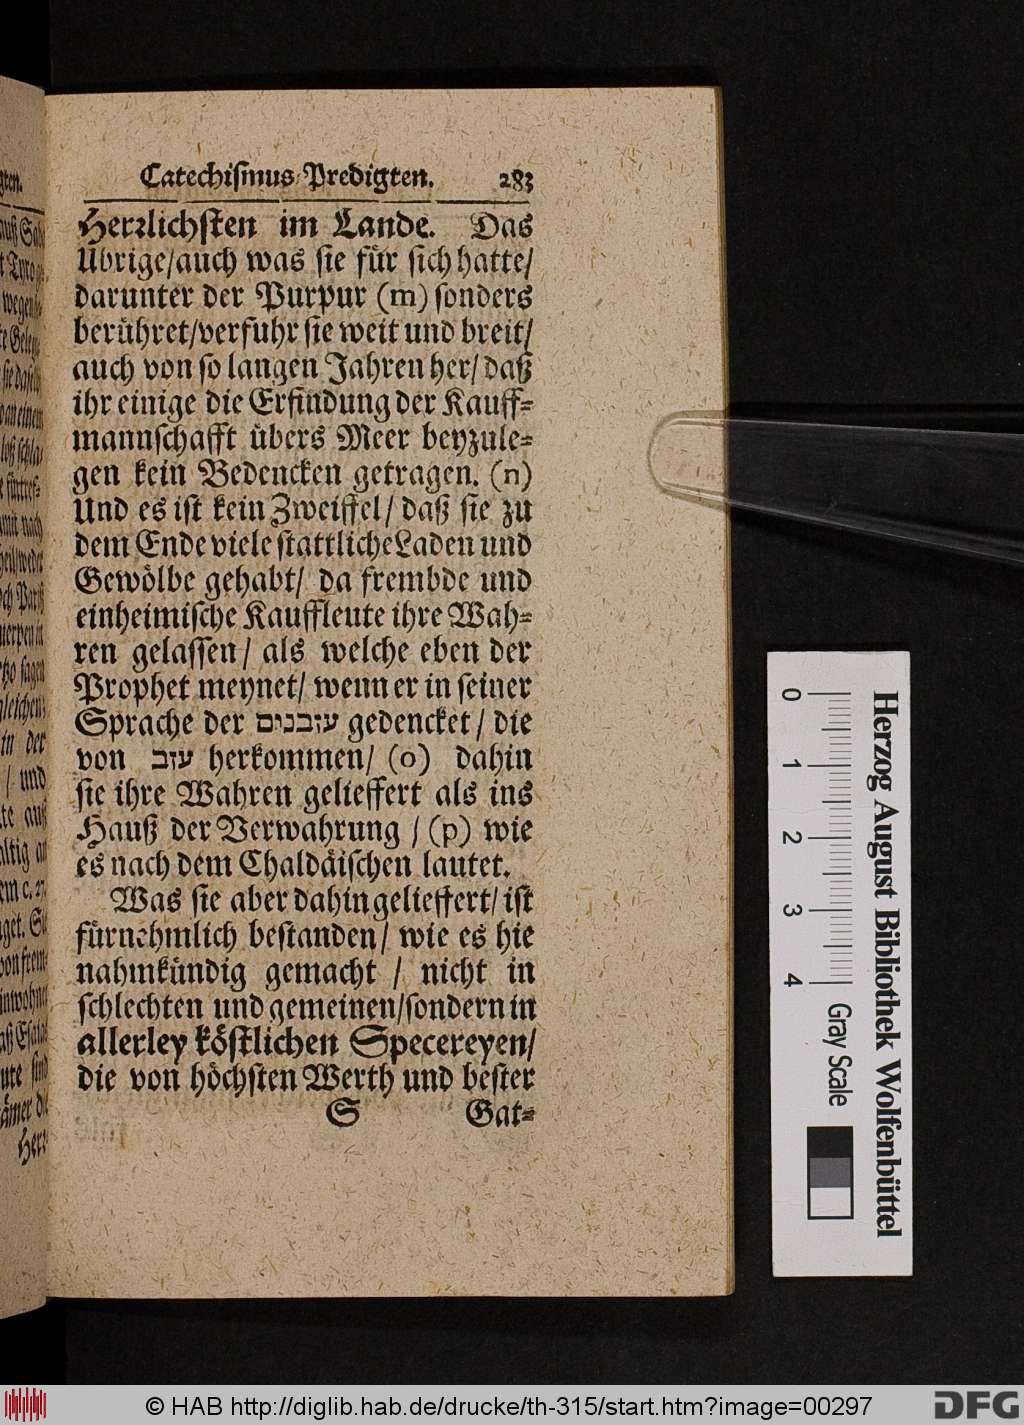 Catechismus-Predigten. 283
Herꝛlichsten im Lande. Das
Ubrige/auch was sie für sich hatte/
darunter der Purpur (m) sonders
berühret/verfuhr sie weit und breit/
auch von so langen Jahren her/ daß
ihr einige die Erfindung der Kauff-
mannschafft übers Meer beyzule-
gen kein Bedencken getragen. (n)
Und es ist kein Zweiffel/ daß sie zu
dem Ende viele stattliche Laden und
Gewölbe gehabt/ da frembde und
einheimische Kauffleute ihre Wah-
ren gelassen/ als welche eben der
Prophet meynet/ wenn er in seiner
Sprache der עזבנים gedencket / die
von עזב herkommen/ (o) dahin
sie ihre Wahren gelieffert als ins
Hauß der Verwahrung / (p) wie
es nach dem Chaldäischen lautet.
Was sie aber dahin gelieffert/ ist
fürnehmlich bestanden/ wie es hie
nahmkündig gemacht / nicht in
schlechten und gemeinen/sondern in
allerley köstlichen Specereyen/
die von höchsten Werth und bester
S Gat-
0 1 2 3 4
Gray Scale
Herzog August Bibliothek Wolfenbüttel
© HAB http://diglib.hab.de/drucke/th-315/start.htm?image=00297
DFG